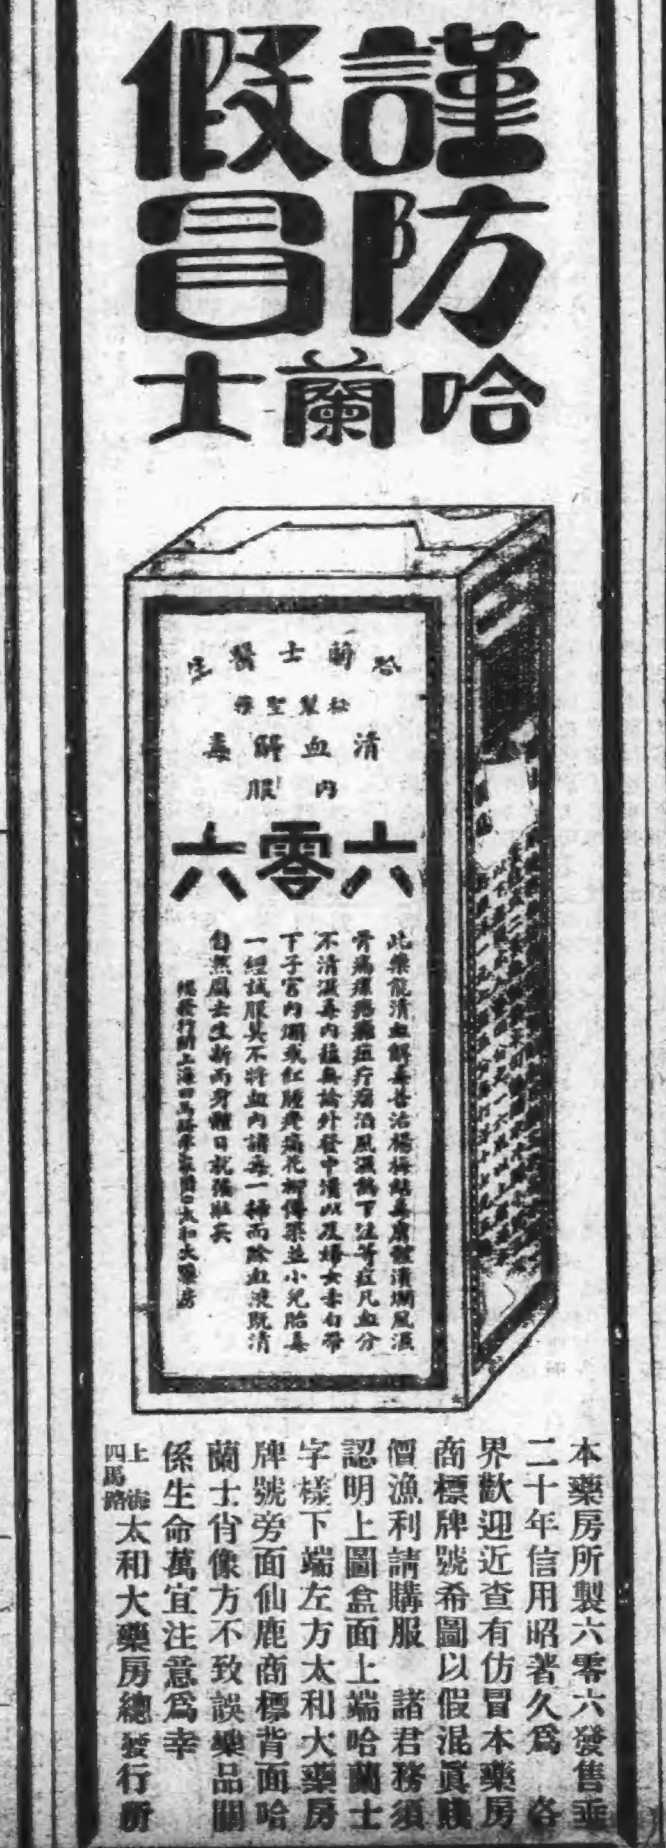 謹防
假冒
哈蘭士
哈蘭士醫生
秘製聖藥
清血解毒
內服
六零六
此藥能清血解毒善治楊梅結毒膚體潰爛風濕
骨痛瘰癧癱疽疔瘡酒風濕熱下注等症凡血分
不清濕毒內蘊無論外發中潰以及婦女赤白帶
下子宮內爛或紅腫疼痛花柳傳染並小兒胎毒
一經試服莫不將血內諸毒一掃而除血液既清
自然腐去生新而身體日就強壯矣
總發行所上海四馬路
太和大藥房
本藥房所製六零六發售垂
二十年信用昭著久爲 各
界歡迎近查有仿冒本藥房
商標牌號希圖以假混眞賤
價漁利請購服 諸君務須
認明上圖盒面上端哈蘭士
字樣下端左方太和大藥房
牌號旁面仙鹿商標背面哈
蘭士肖像方不致誤藥品關
係生命萬宜注意爲幸
上海四馬路太和大藥房總發行所